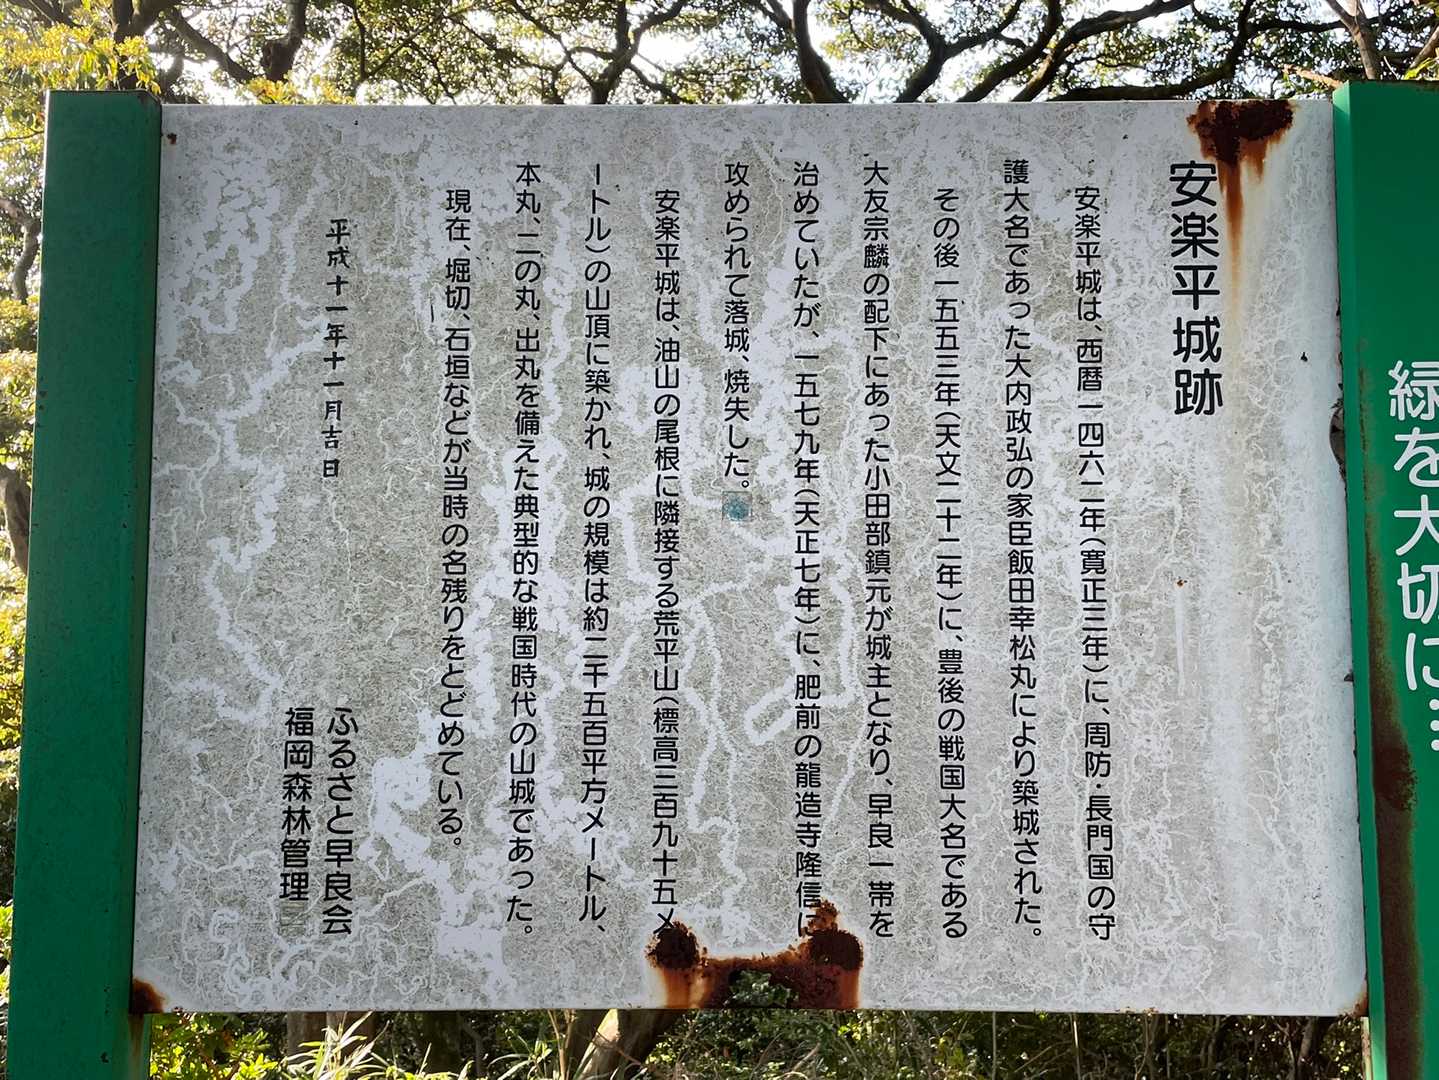 安楽平城跡
安楽平城は、西暦一四六二年(寛正三年)に、周防・長門国の守
護大名であった大内政弘の家臣飯田幸松丸により築城された。
その後一五五三年(天文二十二年)に、豊後の戦国大名である
大友宗麟の配下にあった小田部鎮元が城主となり、早良一帯を
治めていたが、一五七九年(天正七年)に、肥前の龍造寺隆信に
攻められて落城、焼失した。
安楽平城は、油山の尾根に隣接する荒平山(標高三百九十五メ
ートル)の山頂に築かれ、城の規模は約二千五百平方メートル、
本丸、二の丸、出丸を備えた典型的な戦国時代の山城であった。
現在、堀切、石垣などが当時の名残りをとどめている。
平成十一年十一月吉日
ふるさと早良会
福岡森林管理
緑を大切に…